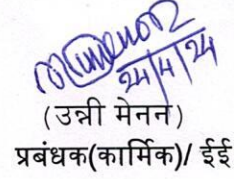 24/4/24
(उन्नी मेनन)
प्रबंधक(कार्मिक)/ ईई